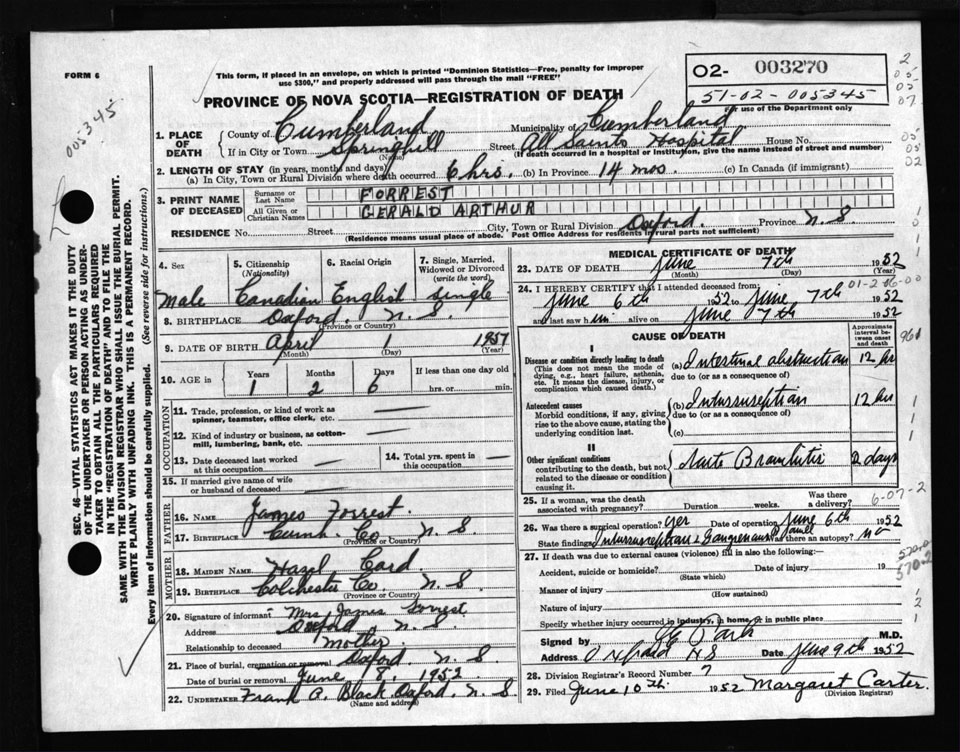 FORM 6
This form, if placed in an envelope, on which is printed "Dominion Statistics—Free, penalty for improper
use $300," and properly addressed will pass through the mail "FREE"
02- 003270
51-02-005345
For use of the Department only
005345
PROVINCE OF NOVA SCOTIA—REGISTRATION OF DEATH
1. PLACE OF DEATH
County of Cumberland Municipality of Cumberland
If in City or Town Springhill Street All Saints Hospital House No.
(Name) (If death occurred in a hospital or institution, give the name instead of street and number)
2. LENGTH OF STAY (in years, months and days)
(a) In City, Town or Rural Division where death occurred 6 hrs. (b) In Province 14 mos. (c) In Canada (if immigrant)
3. PRINT NAME OF DECEASED
Surname or Last Name FORREST
All Given or Christian Names GERALD ARTHUR
RESIDENCE No. Street City, Town or Rural Division Oxford. Province N.S.
(Residence means usual place of abode. Post Office Address for residents in rural parts not sufficient)
4. Sex
Male
5. Citizenship (Nationality)
Canadian
6. Racial Origin
English
7. Single, Married, Widowed or Divorced (write the word)
Single
8. BIRTHPLACE Oxford, N.S.
(Province or Country)
9. DATE OF BIRTH April 1 1951
(Month) (Day) (Year)
10. AGE in
Years Months Days If less than one day old
1 2 6 hrs. or min.
OCCUPATION
11. Trade, profession, or kind of work as spinner, teamster, office clerk, etc. —
12. Kind of industry or business, as cotton-mill, lumbering, bank, etc. —
13. Date deceased last worked at this occupation —
14. Total yrs. spent in this occupation —
15. If married give name of wife or husband of deceased —
FATHER
16. NAME James Forrest.
17. BIRTHPLACE Cumb. Co. N.S
(Province or Country)
MOTHER
18. MAIDEN NAME Hazel Card
19. BIRTHPLACE Colchester Co. N.S
(Province or Country)
20. Signature of informant Mrs James Forrest
Address Oxford, N.S.
Relationship to deceased Mother.
21. Place of burial, cremation or removal Oxford. N.S.
Date of burial or removal June 8, 1952
22. UNDERTAKER Frank A. Black Oxford, N.S
(Name and address)
MEDICAL CERTIFICATE OF DEATH
23. DATE OF DEATH June 7th 1952
(Month) (Day) (Year)
24. I HEREBY CERTIFY that I attended deceased from:
June 6th 1952 to June 7th 1952
and last saw him alive on June 7th 1952
CAUSE OF DEATH
Approximate interval between onset and death
I
Disease or condition directly leading to death
(This does not mean the mode of dying, e.g., heart failure, asthenia, etc. It means the disease, injury, or complication which caused death.)
(a) Intestinal obstruction 12 hr
due to (or as a consequence of)
Antecedent causes
Morbid conditions, if any, giving rise to the above cause, stating the underlying condition last.
(b) Intussuseption 12 hr
due to (or as a consequence of)
(c)
II
Other significant conditions
contributing to the death, but not related to the disease or condition causing it.
Acute Bronchitis 2 days
25. If a woman, was the death associated with pregnancy? Duration weeks. Was there a delivery?
6-07-2
26. Was there surgical operation? yes Date of operation June 6th 1952
State findings Intussuseption & Gangrenous Bowel Was there an autopsy? no
27. If death was due to external causes (violence) fill in also the following:
Accident, suicide or homicide? Date of injury 19
(State which)
Manner of injury
(How sustained)
Nature of injury
Specify whether injury occurred in industry, in home, or in public place
Signed by M.D.
Address Oxford NS Date June 9th 1952
28. Division Registrar's Record Number 7
29. Filed June 10th. 1952 Margaret Carter.
(Division Registrar)
SEC. 46—VITAL STATISTICS ACT MAKES IT THE DUTY
OF THE UNDERTAKER OR PERSON ACTING AS UNDER-
TAKER TO OBTAIN ALL THE PARTICULARS REQUIRED
IN THE "REGISTRATION OF DEATH" AND TO FILE THE
SAME WITH THE DIVISION REGISTRAR WHO SHALL ISSUE THE BURIAL PERMIT.
WRITE PLAINLY WITH UNFADING INK. THIS IS A PERMANENT RECORD.
Every item of information should be carefully supplied. (See reverse side for instructions.)